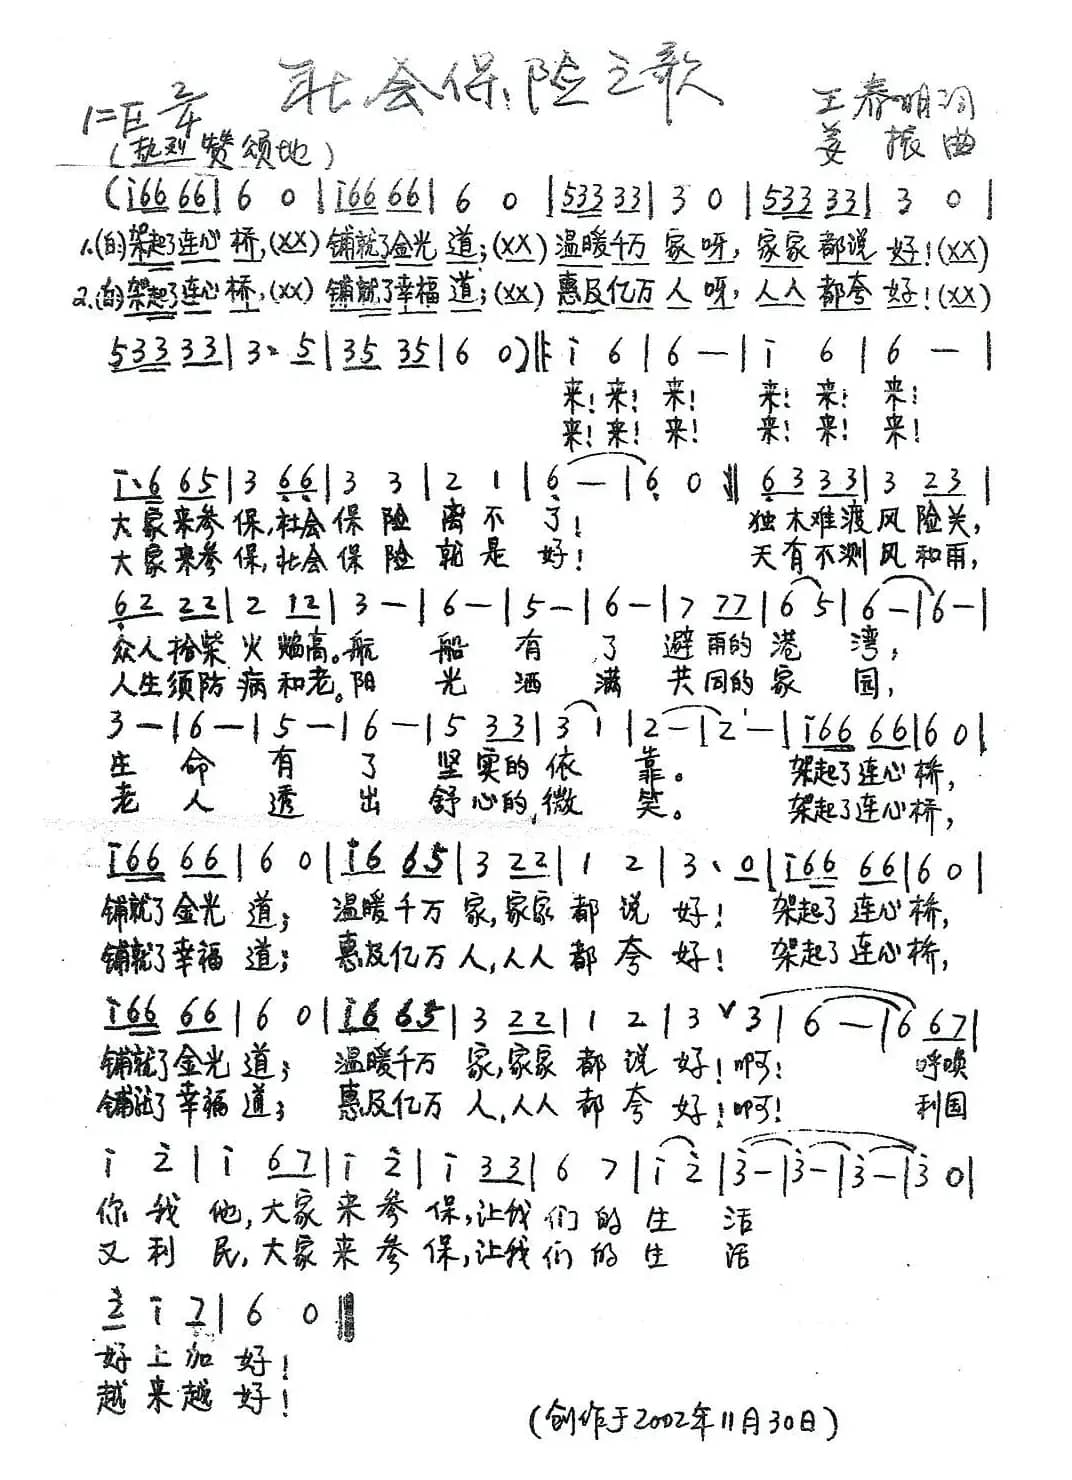 社会保险之歌
1=E 2/4
王春明词
姜振曲
(热烈 赞颂地)
(i66 66 | 6 0 | i66 66 | 6 0 | 533 33 | 3 0 | 533 33 | 3 0 |
1.(白)架起了连心桥,(XX) 铺就了金光道;(XX) 温暖千万家呀,家家都说好!(XX)
2.(白)架起了连心桥,(XX) 铺就了幸福道;(XX) 惠及亿万人呀,人人都夸好!(XX)
533 33 | 3· 5 | 35 35 | 6 0) ‖: i 6 | 6 — | i 6 | 6 — |
来!来!来! 来!来!来!
来!来!来! 来!来!来!
i·6 65 | 3 66 | 3 3 | 2 1 | 6 — | 6 0 ‖ 63 33 | 3 23 |
大家来参保,社会保险离不了! 独木难渡风险关,
大家来参保,社会保险就是好! 天有不测风和雨,
62 22 | 2 12 | 3 — | 6 — | 5 — | 6 — | 7 77 | 6 5 | 6 — | 6 — |
众人拾柴火焰高。航船有了避雨的港湾,
人生须防病和老。阳光洒满共同的家园,
3 — | 6 — | 5 — | 6 — | 5 33 | 3 1 | 2 — | 2 — | i66 66 | 6 0 |
生命有了坚实的依靠。 架起了连心桥,
老人透出舒心的微笑。 架起了连心桥,
i66 66 | 6 0 | i6 65 | 3 22 | 1 2 | 3· 0 | i66 66 | 6 0 |
铺就了金光道; 温暖千万家,家家都说好! 架起了连心桥,
铺就了幸福道; 惠及亿万人,人人都夸好! 架起了连心桥,
i66 66 | 6 0 | i6 65 | 3 22 | 1 2 | 3 ∨ 3 | 6 — | 6 67 |
铺就了金光道; 温暖千万家,家家都说好!啊! 呼唤
铺就了幸福道; 惠及亿万人,人人都夸好!啊! 利国
i 2 | i 67 | i 2 | i 33 | 6 7 | i 2 | 3 — | 3 — | 3 — | 3 0 |
你我他,大家来参保,让我们的生活
又利民,大家来参保,让我们的生活
2 i 7 | 6 0 ‖
好上加好!
越来越好!
(创作于2002年11月30日)